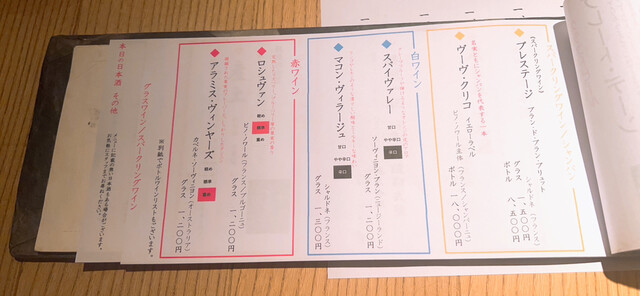 スパークリングワイン/シャンパン
【スパークリングワイン】
プレステージ
ブラン・ド・ブラン ブリュット
シャルドネ(フランス)
グラス 一、五〇〇円
ボトル 八、五〇〇円
ヴーヴ・クリコ イエローラベル
ピノ・ノワール主体(フランス/シャンパーニュ)
ボトル 一八、〇〇〇円
白ワイン
スパイヴァレー
甘口
やや辛口
辛口
ソーヴィニヨン・ブラン(ニュージーランド)
グラス 一、二〇〇円
マコン・ヴィラージュ
甘口
やや辛口
辛口
シャルドネ(フランス)
グラス 一、三〇〇円
赤ワイン
ロシュヴァン
軽め
標準
重め
ピノ・ノワール(フランス/ブルゴーニュ)
グラス 一、二〇〇円
アラミス・ヴィンヤーズ
軽め
標準
重め
カベルネ・ソーヴィニヨン(オーストラリア)
グラス 一、二〇〇円
※別紙でボトルワインリストもございます。
グラスワイン/スパークリングワイン
本日の日本酒 その他